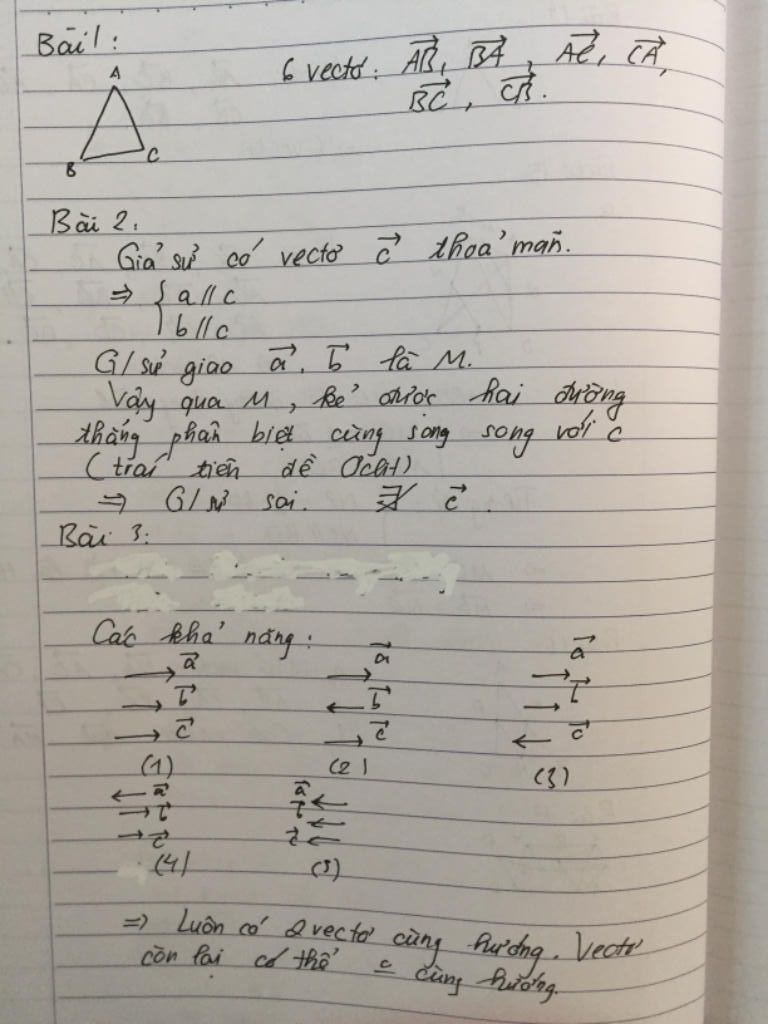 Bài 1:
A
B
C
6 vectơ: AB, BA, AC, CA,
BC, CB.
Bài 2:
Giả sử có vectơ c thoả mãn.
⇒ { a // c
b // c
G/sử giao a, b là M.
Vậy qua M, kẻ được hai đường
thẳng phân biệt cùng song song với c
(trái tiên đề Ơclit)
⇒ G/sử sai. ∄ c.
Bài 3:
Các khả năng:
→ a → a → a
→ b ← b → b
→ c → c ← c
(1) (2) (3)
← a a ←
→ b b ←
→ c c ←
(4) (5)
⇒ Luôn có 2 vectơ cùng hướng. Vectơ
còn lại có thể cùng hướng.